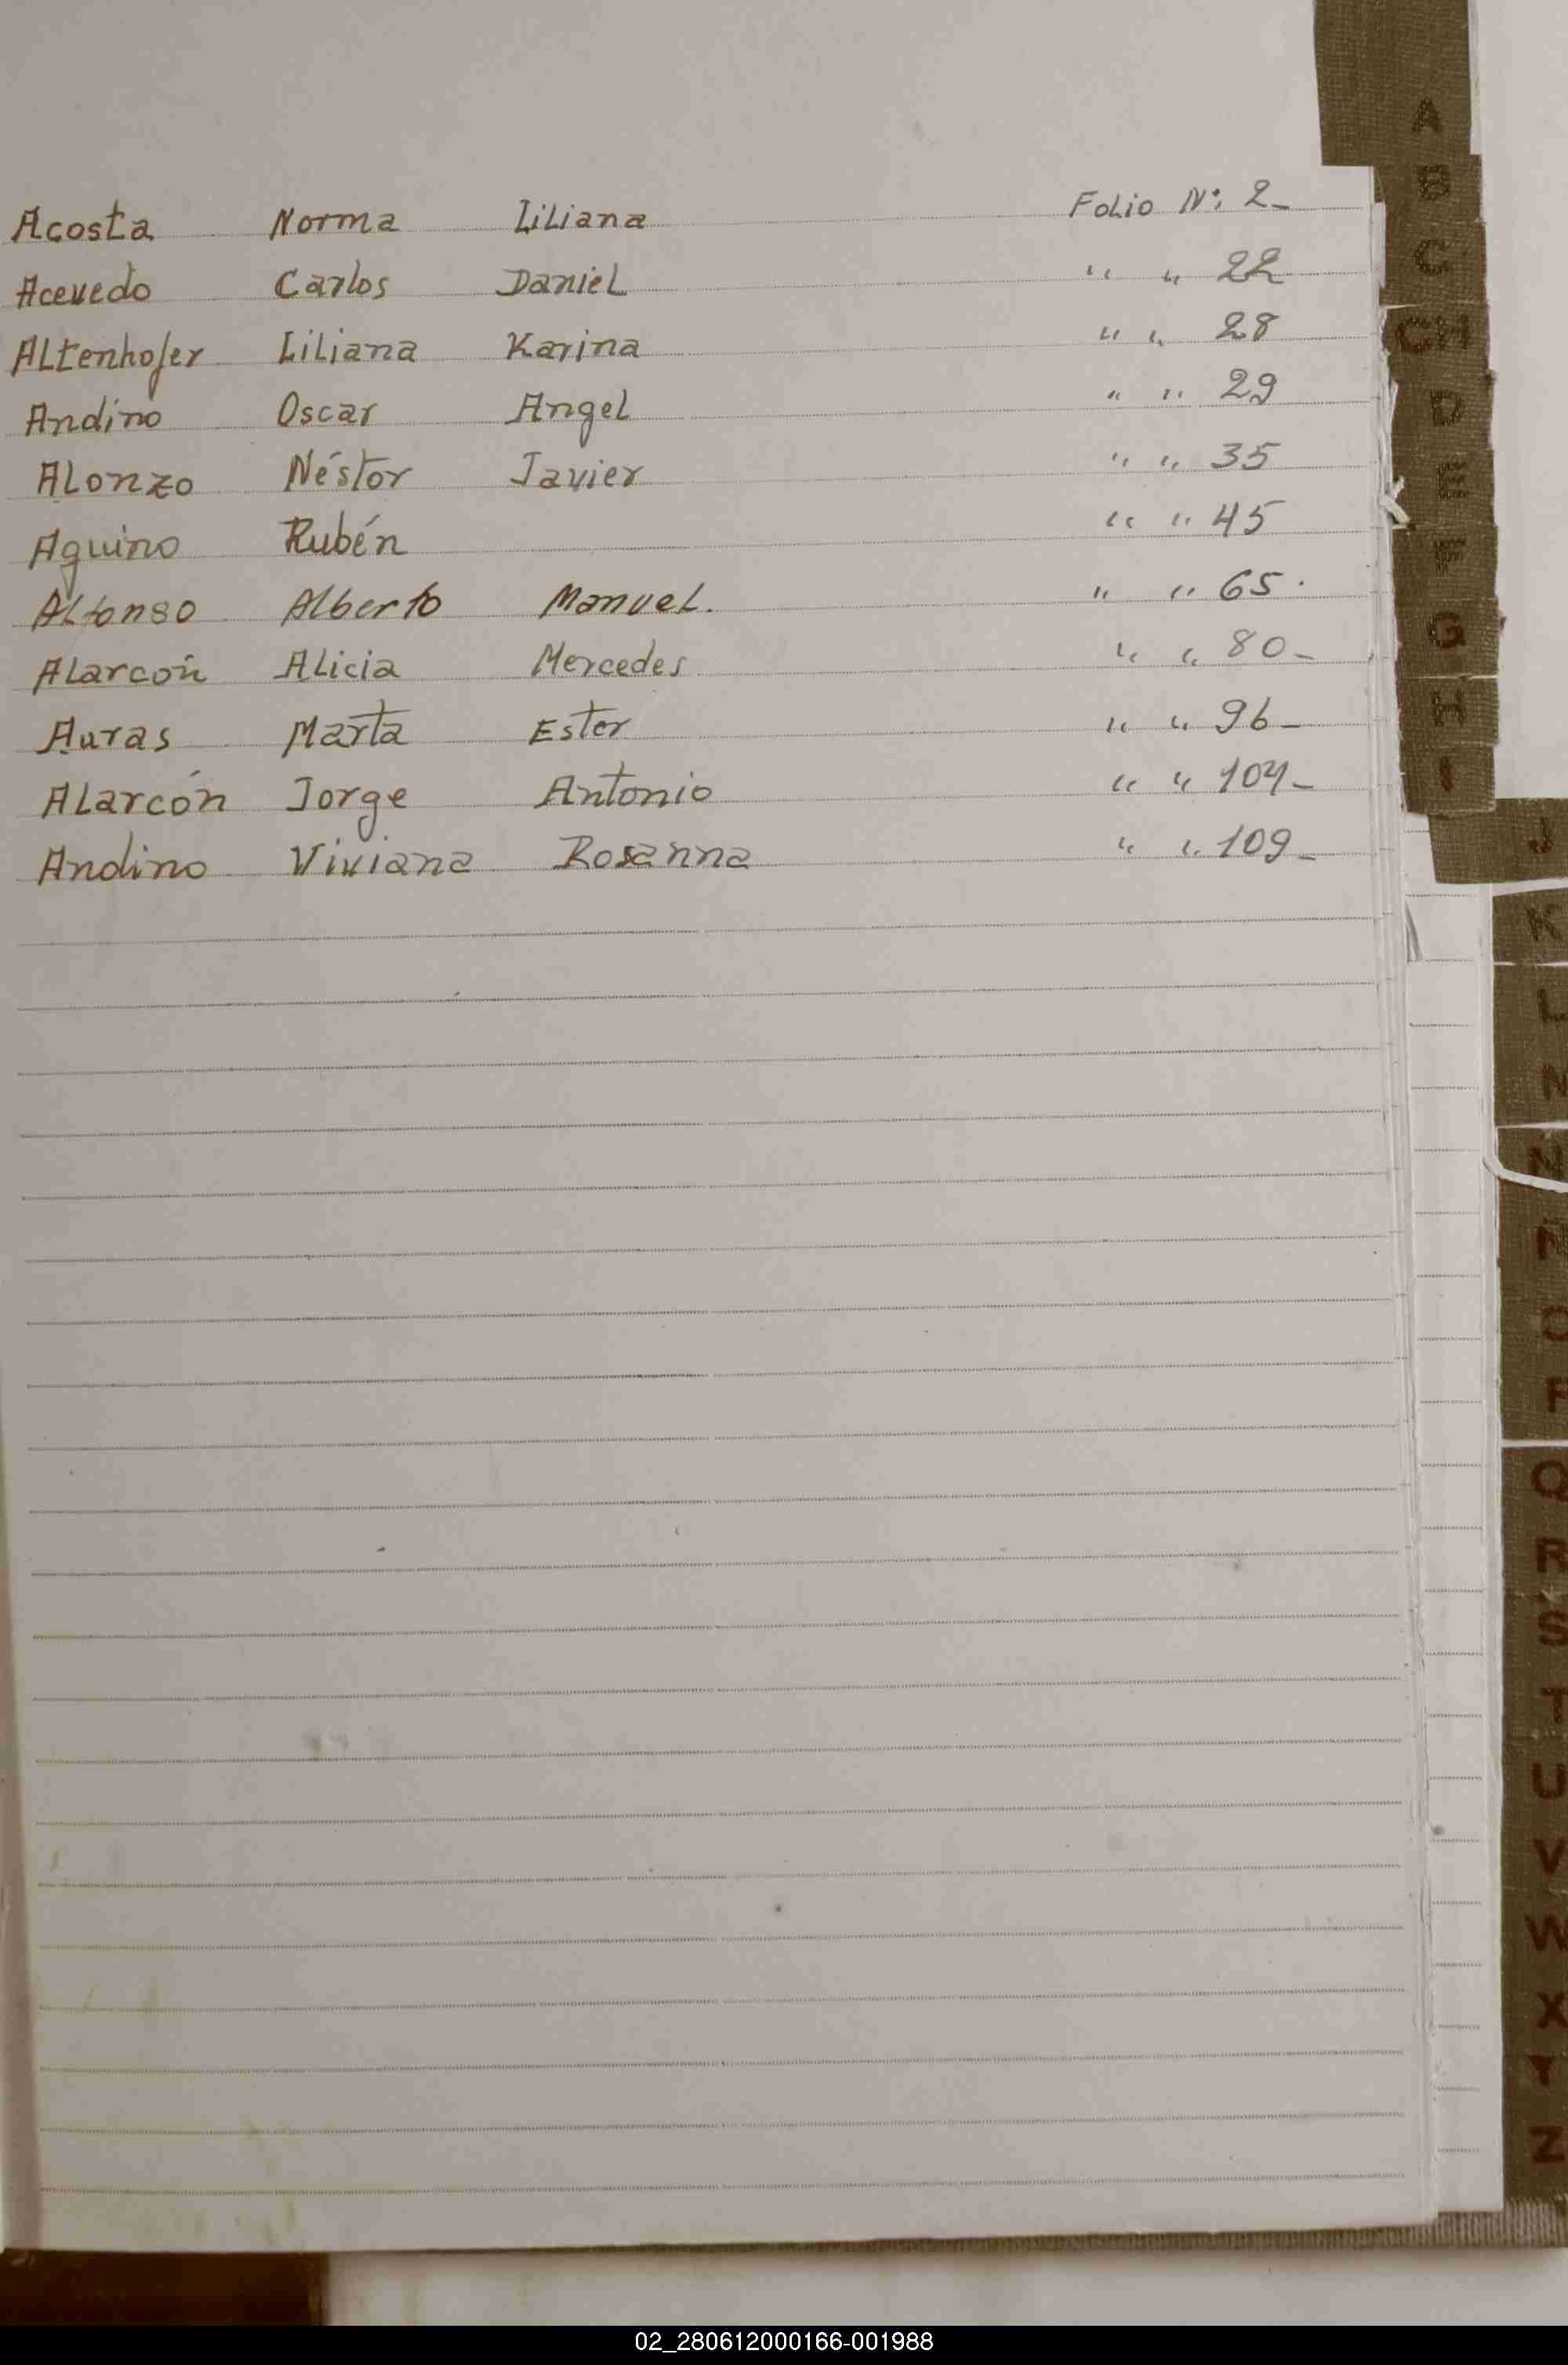 Acosta Norma Liliana Folio Nº: 2-
Acevedo Carlos Daniel " " 22
Altenhofer Liliana Karina " " 28
Andino Oscar Angel " " 29
Alonzo Néstor Javier " " 35
Aquino Rubén " " 45
Alfonso Alberto Manuel. " " 65.
Alarcón Alicia Mercedes " " 80-
Auras Marta Ester " " 96-
Alarcón Jorge Antonio " " 104-
Andino Viviana Rosanna " " 109-
A
B
C
CH
D
E
F
G
H
I
J
K
L
N
O
P
Q
R
S
T
U
V
W
X
Y
Z
02_280612000166-001988